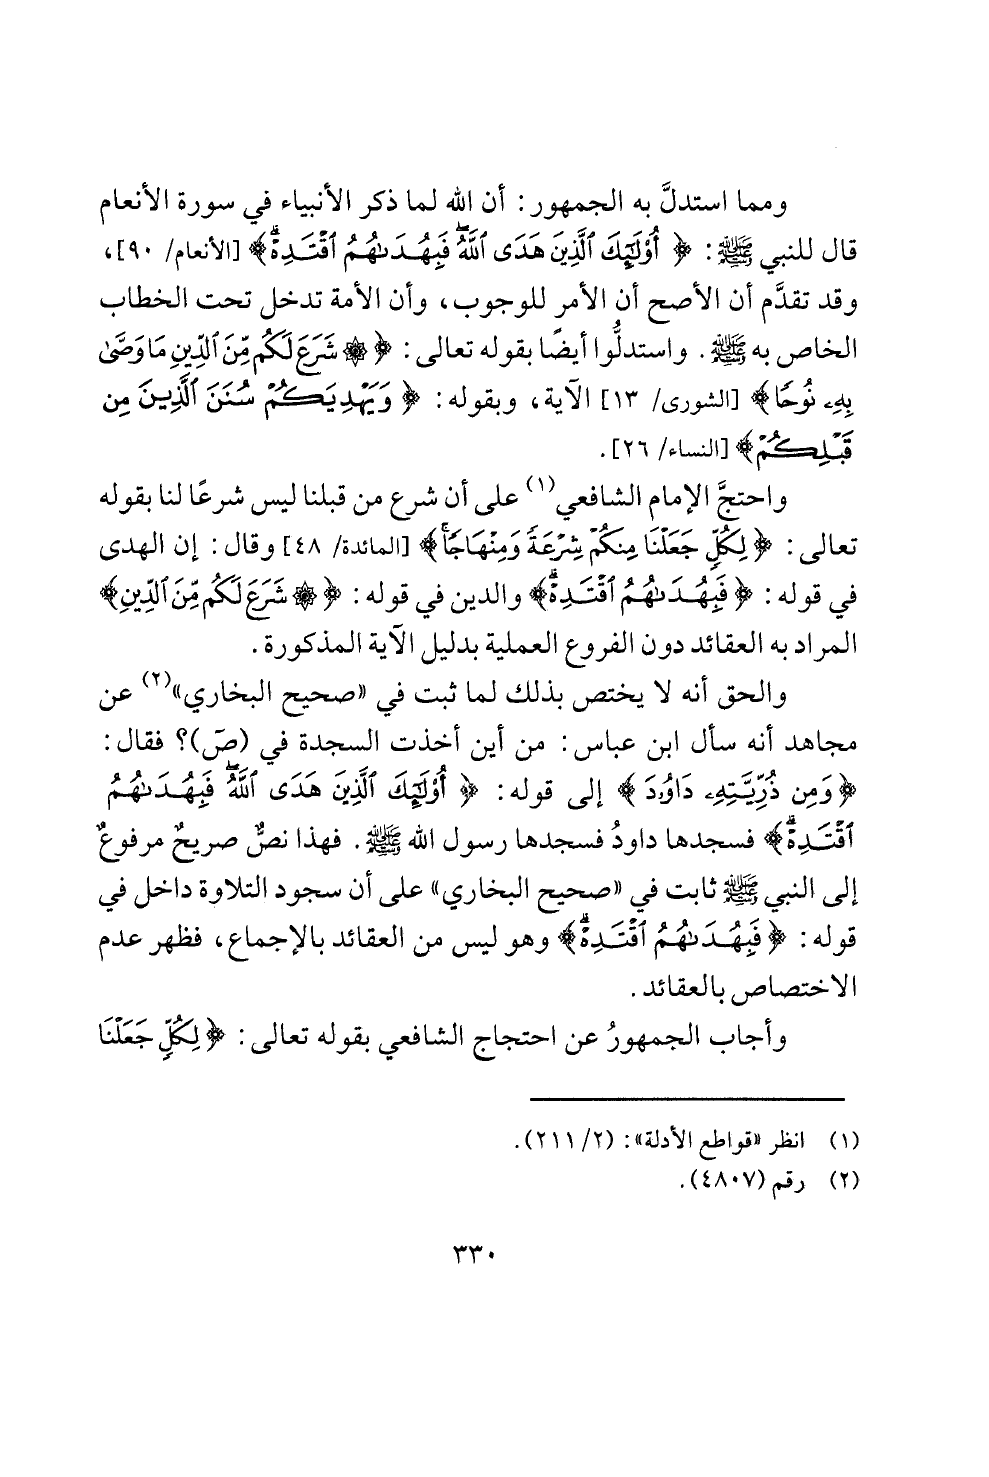 ومما استدلَّ به الجمهور: أن الله لما ذكر الأنبياء في سورة الأنعام
قال للنبي ﷺ: ﴿أُوْلَٰٓئِكَ ٱلَّذِينَ هَدَى ٱللَّهُۖ فَبِهُدَىٰهُمُ ٱقْتَدِهْۗ﴾ [الأنعام/ ٩٠]،
وقد تقدَّم أن الأصح أن الأمر للوجوب، وأن الأمة تدخل تحت الخطاب
الخاص به ﷺ. واستدلُّوا أيضًا بقوله تعالى: ﴿۞ شَرَعَ لَكُم مِّنَ ٱلدِّينِ مَا وَصَّىٰ
بِهِۦ نُوحًا﴾ [الشورى/ ١٣] الآية، وبقوله: ﴿وَيَهْدِيَكُمْ سُنَنَ ٱلَّذِينَ مِن
قَبْلِكُمْ﴾ [النساء/ ٢٦].
واحتجَّ الإمام الشافعي(١) على أن شرع من قبلنا ليس شرعًا لنا بقوله
تعالى: ﴿لِكُلٍّ جَعَلْنَا مِنكُمْ شِرْعَةً وَمِنْهَاجًاۚ﴾ [المائدة/ ٤٨] وقال: إن الهدى
في قوله: ﴿فَبِهُدَىٰهُمُ ٱقْتَدِهْۗ﴾ والدين في قوله: ﴿۞ شَرَعَ لَكُم مِّنَ ٱلدِّينِ﴾
المراد به العقائد دون الفروع العملية بدليل الآية المذكورة.
والحق أنه لا يختص بذلك لما ثبت في «صحيح البخاري»(٢) عن
مجاهد أنه سأل ابن عباس: من أين أخذت السجدة في (صَ)؟ فقال:
﴿وَمِن ذُرِّيَّتِهِۦ دَاوُۥدَ﴾ إلى قوله: ﴿أُوْلَٰٓئِكَ ٱلَّذِينَ هَدَى ٱللَّهُۖ فَبِهُدَىٰهُمُ
ٱقْتَدِهْۗ﴾ فسجدها داودُ فسجدها رسول الله ﷺ. فهذا نصٌّ صريحٌ مرفوعٌ
إلى النبي ﷺ ثابت في «صحيح البخاري» على أن سجود التلاوة داخل في
قوله: ﴿فَبِهُدَىٰهُمُ ٱقْتَدِهْۗ﴾ وهو ليس من العقائد بالإجماع، فظهر عدم
الاختصاص بالعقائد.
وأجاب الجمهورُ عن احتجاج الشافعي بقوله تعالى: ﴿لِكُلٍّ جَعَلْنَا
(١) انظر «قواطع الأدلة»: (٢/ ٢١١).
(٢) رقم (٤٨٠٧).
٣٣٠